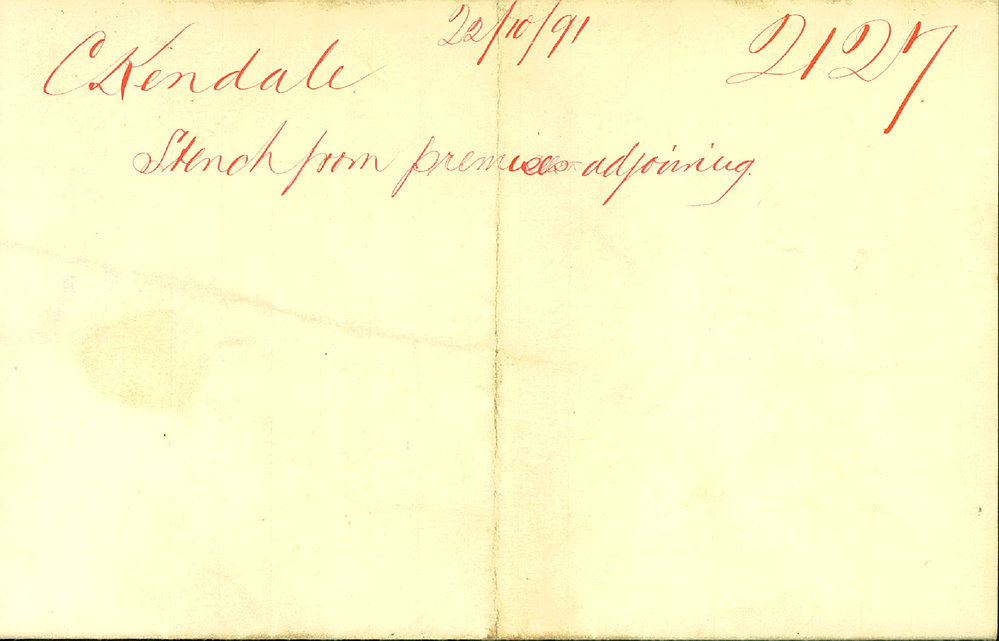 22/10/91
2127
C Kendale
Stench from premises adjoining